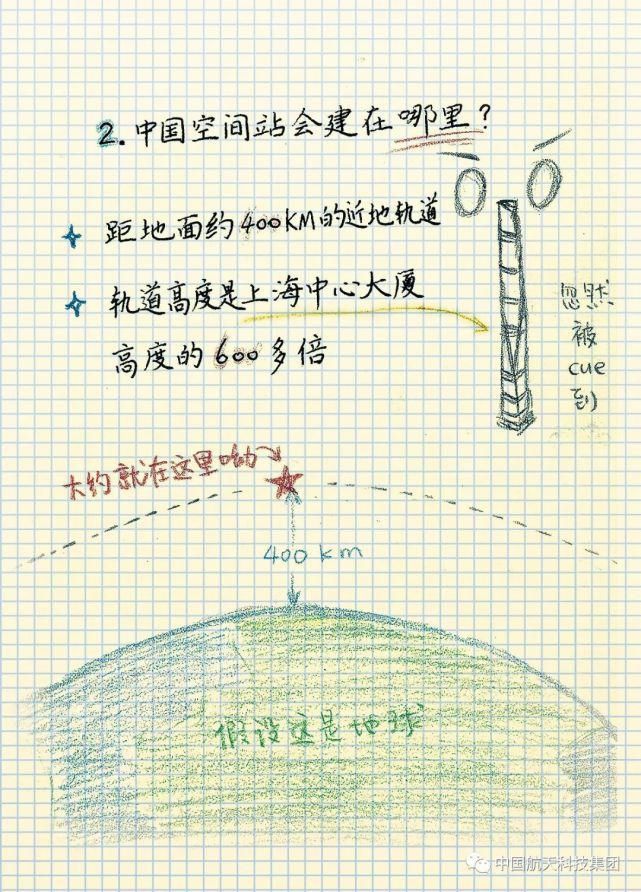 2. 中国空间站会建在哪里？
距地面约400KM的近地轨道
轨道高度是上海中心大厦
高度的600多倍
忽然
被
cue
到
大约就在这里呦
400 km
假设这是地球
中国航天科技集团